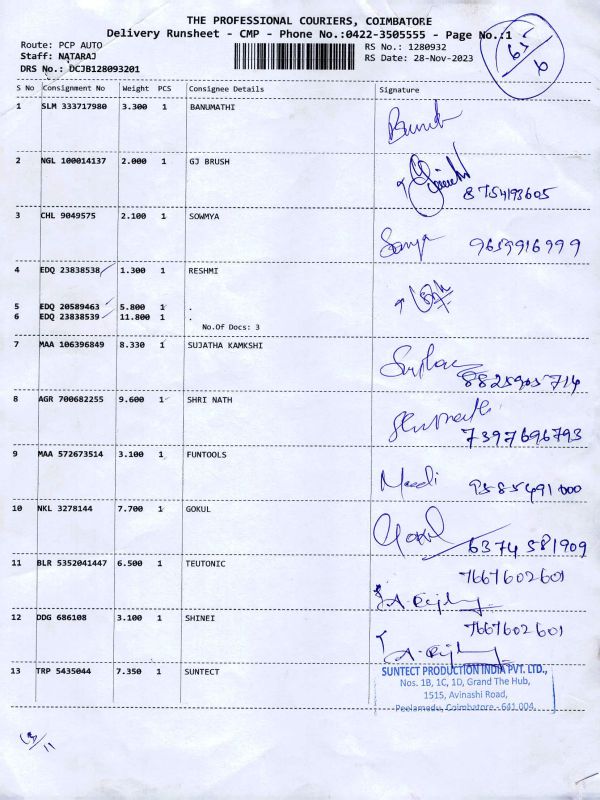 THE PROFESSIONAL COURIERS, COIMBATORE
Delivery Runsheet - CMP - Phone No.:0422-3505555 - Page No.:1
Route: PCP AUTO
RS No.: 1280932
Staff: NATARAJ
RS Date: 28-Nov-2023
DRS No.: DCJB128093201
S No Consignment No Weight PCS Consignee Details Signature
1 SLM 333717980 3.300 1 BANUMATHI
2 NGL 100014137 2.000 1 GJ BRUSH
8754193605
3 CHL 9049575 2.100 1 SOWMYA
9659916999
4 EDQ 23838538 1.300 1 RESHMI
5 EDQ 20589463 5.800 1 .
6 EDQ 23838539 11.800 1 .
No.Of Docs: 3
7 MAA 106396849 8.330 1 SUJATHA KAMKSHI
8825905714
8 AGR 700682255 9.600 1 SHRI NATH
7397696793
9 MAA 572673514 3.100 1 FUNTOOLS
9585491000
10 NKL 3278144 7.700 1 GOKUL
Gokul
6374581909
11 BLR 5352041447 6.500 1 TEUTONIC
7667602601
12 DDG 686108 3.100 1 SHINEI
7667602601
13 TRP 5435044 7.350 1 SUNTECT
SUNTECT PRODUCTION INDIA PVT. LTD.,
Nos. 1B, 1C, 1D, Grand The Hub,
1515, Avinashi Road,
Peelamedu, Coimbatore - 641 004.